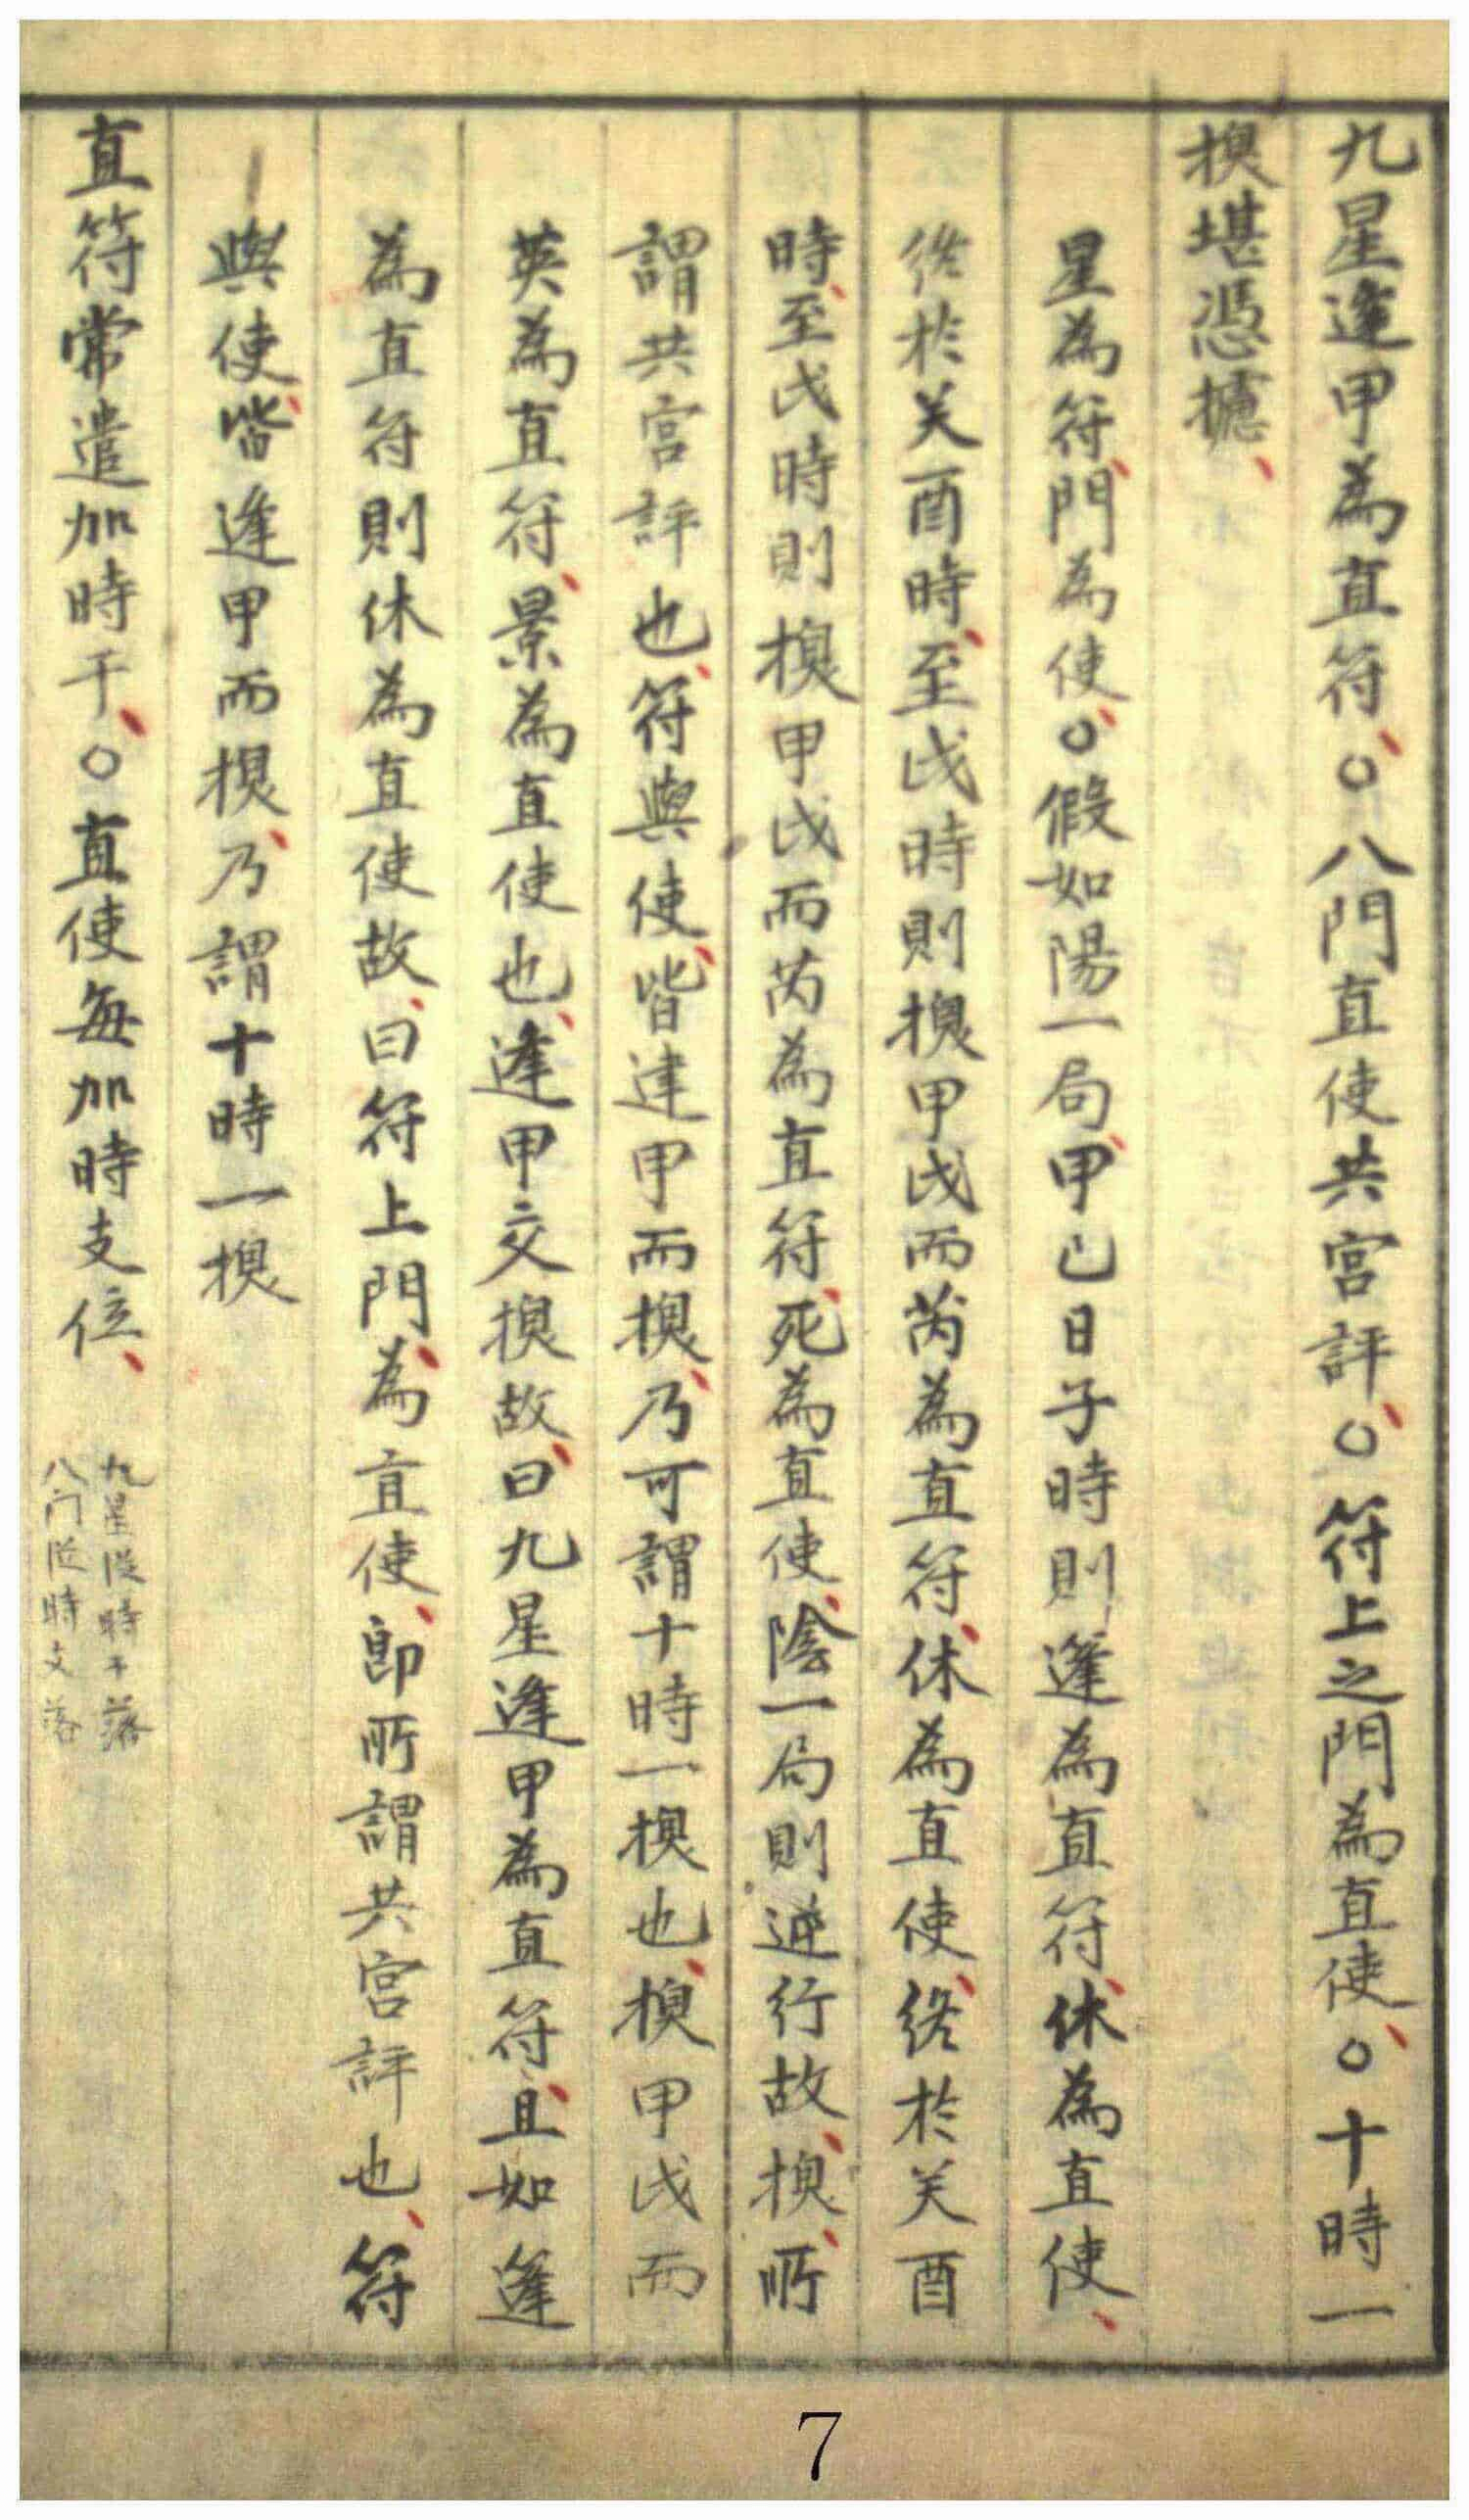 九星逢甲為直符、○八門直使共宮評、○符上之門為直使、○十時一
換堪憑據、
星為符、門為使、○假如陽一局、甲己日子時則蓬為直符、休為直使、
終於癸酉時、至戌時則換甲戌而芮為直符、休為直使、終於癸酉
時、至戌時則換甲戌而芮為直符、死為直使、陰一局則逆行故、換、所
謂共宮評也、符與使、皆逢甲而換、乃可謂十時一換也、換甲戌而
英為直符、景為直使也、逢甲交換故、曰九星逢甲為直符、且如蓬
為直符則休為直使故、曰符上門、為直使、即所謂共宮評也、符
與使、皆逢甲而換、乃謂十時一換
直符常遣加時干、○直使每加時支位、
九星從時干落
八门從時支落
7